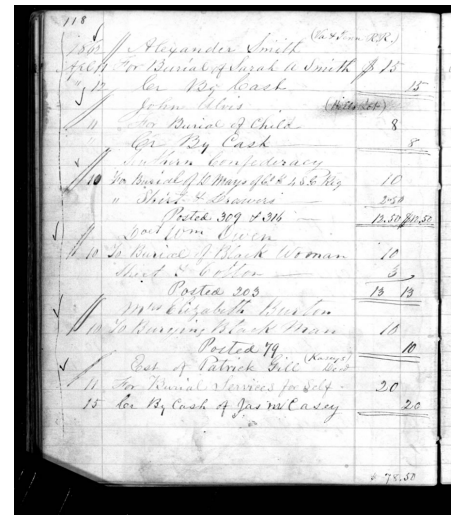 118
(Va & Tenn R.R.)
1862 Alexander Smith
Apl 11 For Burial of Sarah A Smith $ 15
" 12 Cr By Cash 15
John
11 For Burial of Child 8
Cr By Cash 8
Southern Confederacy
10 To Burial of Mays 45 10
" Shirt & Drawers 2.50
Posted 309 & 316 12.50 12.50
Wm Owen
10 To Burial of Black Woman 10
Shirt & Coffin 3
Posted 203 13 13
Mrs Elizabeth Burton
10 To Burying Black Man 10
Posted 79 10
Est of Patrick Gill Decd
11 For Burial Services for Self 20
15 Cr By Cash of Jas M Casey 20
$ 78.50